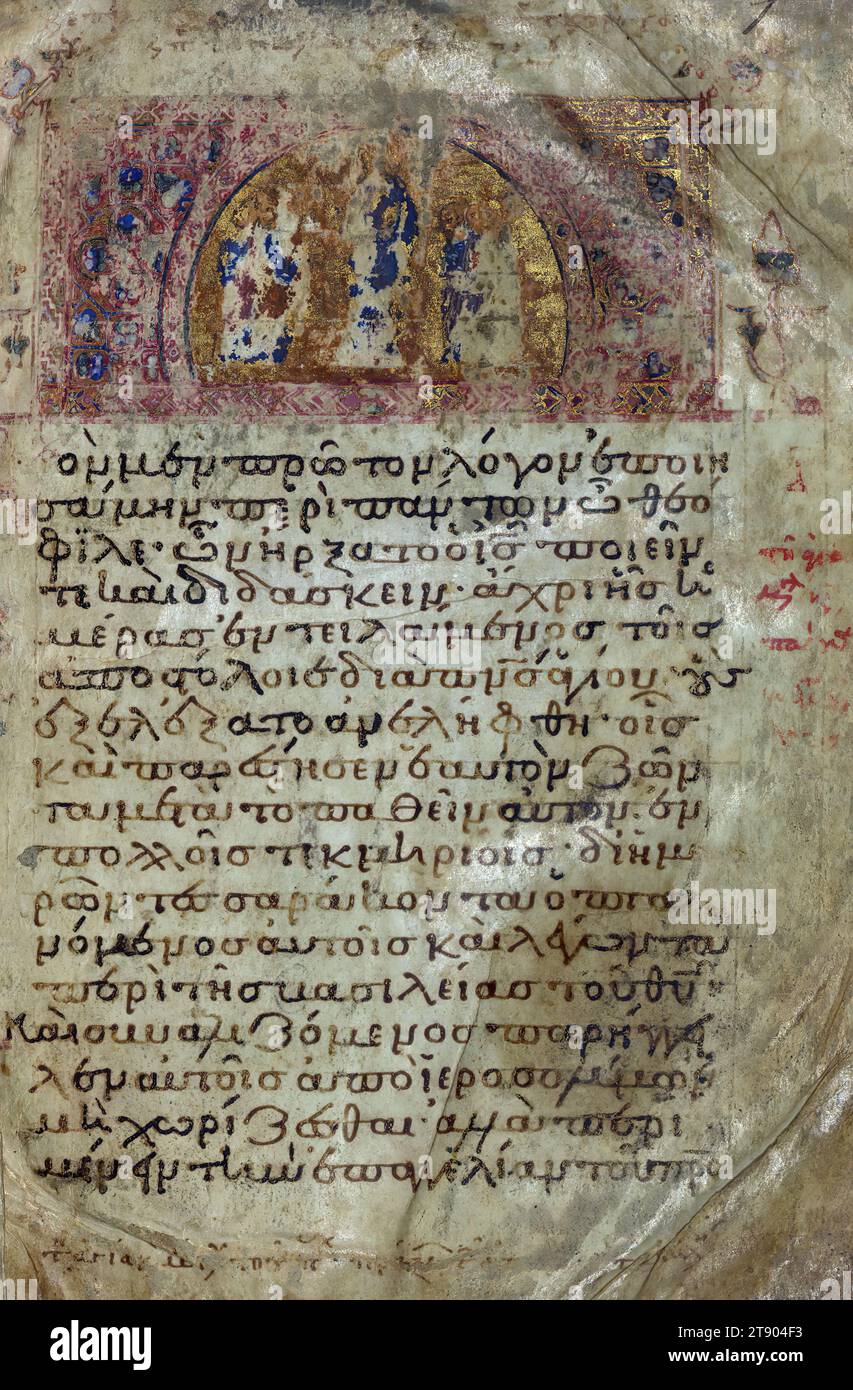 ὸν μὲν πρῶτον λόγον ἐποιη
σάμην περὶ πάντων ὦ θεό
φϊλε· ὧν ἤρξατο ὁ ι̅ς̅ ποιεῖν
τε καὶ διδάσκειν· ἄχρι ἧς ἡ
μέρας ἐντειλάμενος τοῖς
ἀποστόλοις διὰ π̅ν̅ς̅ ἁγίου· οὓς
ἐξελέξατο ἀνελήφθη· οἷς
καὶ παρέστησεν ἑαυτὸν ζῶν
τα μετὰ τὸ παθεῖν αὐτὸν· ἐν
πολλοῖς τεκμηρίοις· δι ἡμε
ρῶν τεσσαράκοντα ὀπτα
νόμενος αὐτοῖς καὶ λέγων τὰ
περὶ τῆς βασιλείας τοῦ θ̅υ̅
Καὶ συναλιζόμενος παρήγγε
λεν αὐτοῖς ἀπὸ ἱεροσολύμων
μὴ χωρίζεσθαι· ἀλλὰ περι
μένειν τὴν ἐπαγγελίαν τοῦ π̅ρ̅ς̅
alamy
Image ID: 2T904F3
www.alamy.com